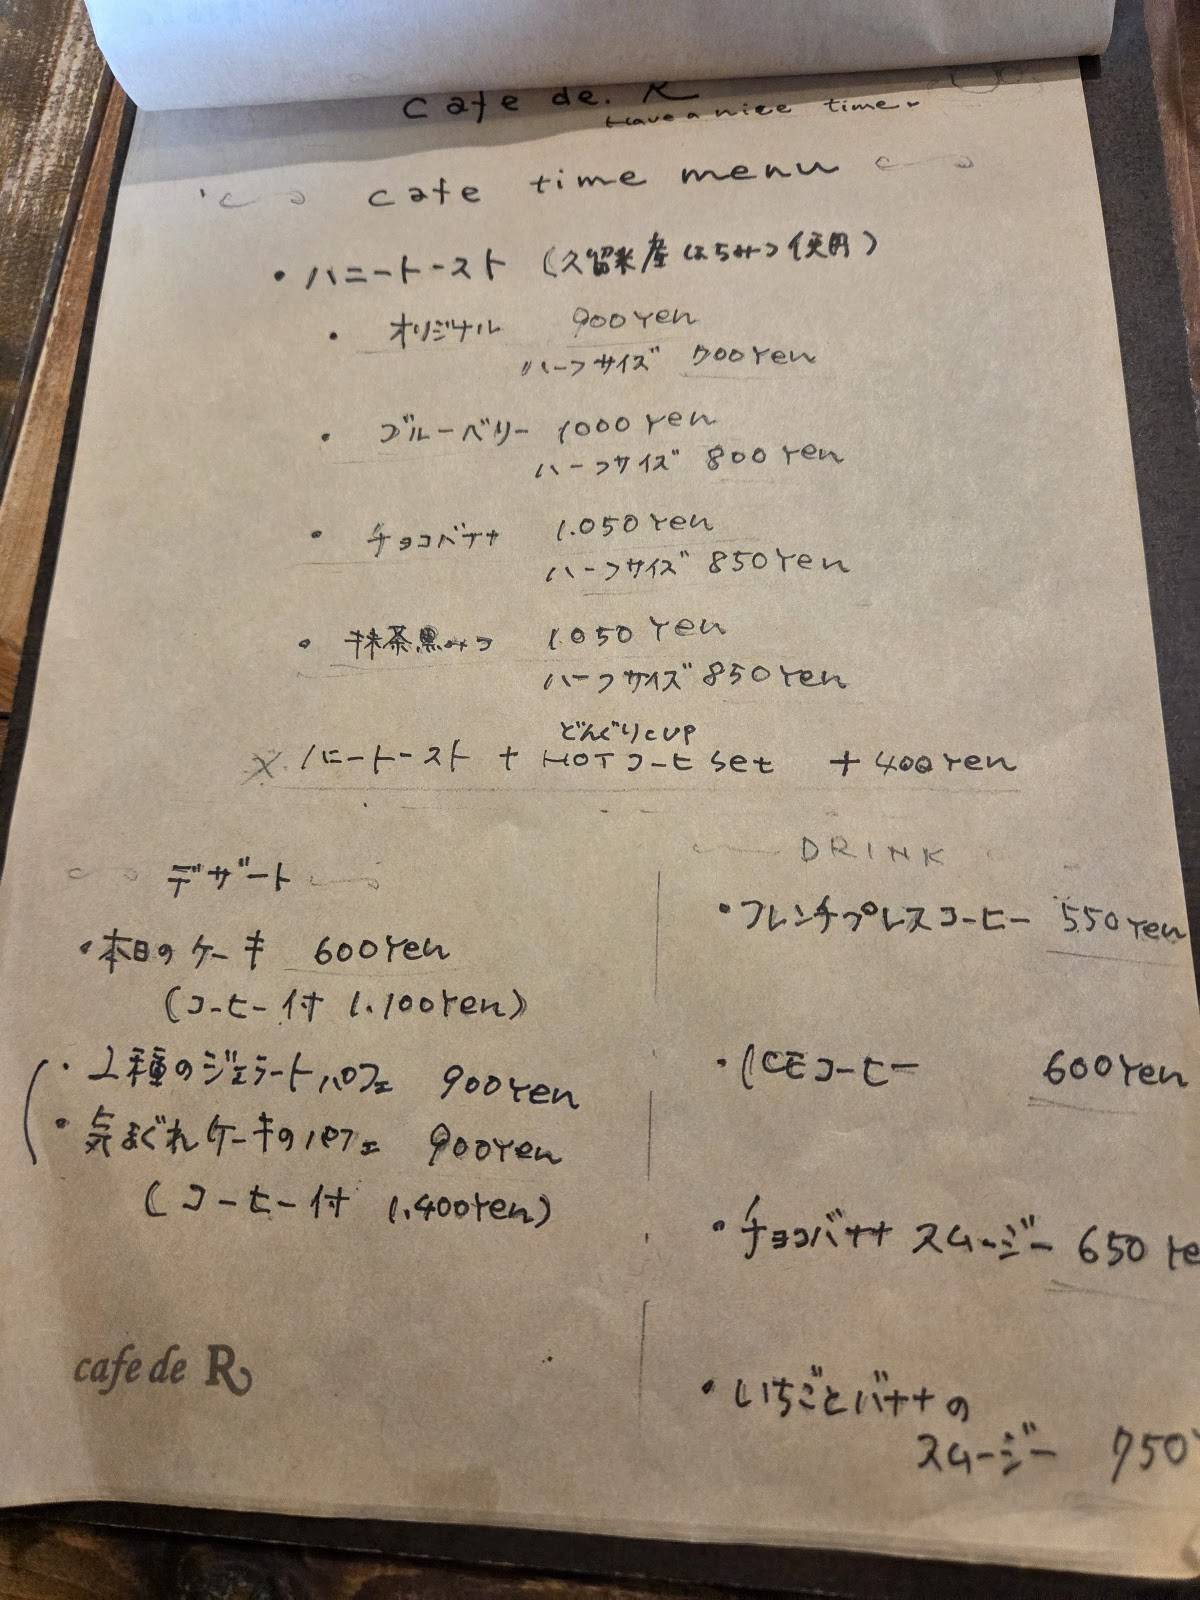 cafe de. R
Have a nice time.
cafe time menu
・ハニートースト (久留米産はちみつ使用)
・オリジナル 900Yen
ハーフサイズ 700Yen
・ブルーベリー 1000Yen
ハーフサイズ 800Yen
・チョコバナナ 1.050Yen
ハーフサイズ 850Yen
・抹茶黒みつ 1.050Yen
ハーフサイズ 850Yen
どんぐりcup
※ハニートースト + HOTコーヒset +400Yen
デザート
・本日のケーキ 600Yen
(コーヒー付 1.100Yen)
・2種のジェラートパフェ 900Yen
・気まぐれケーキのパフェ 900Yen
(コーヒー付 1.400Yen)
cafe de R
DRINK
・フレンチプレスコーヒー 550Yen
・ICEコーヒー 600Yen
・チョコバナナスムージー 650 Ye
・いちごとバナナの
スムージー 750Y